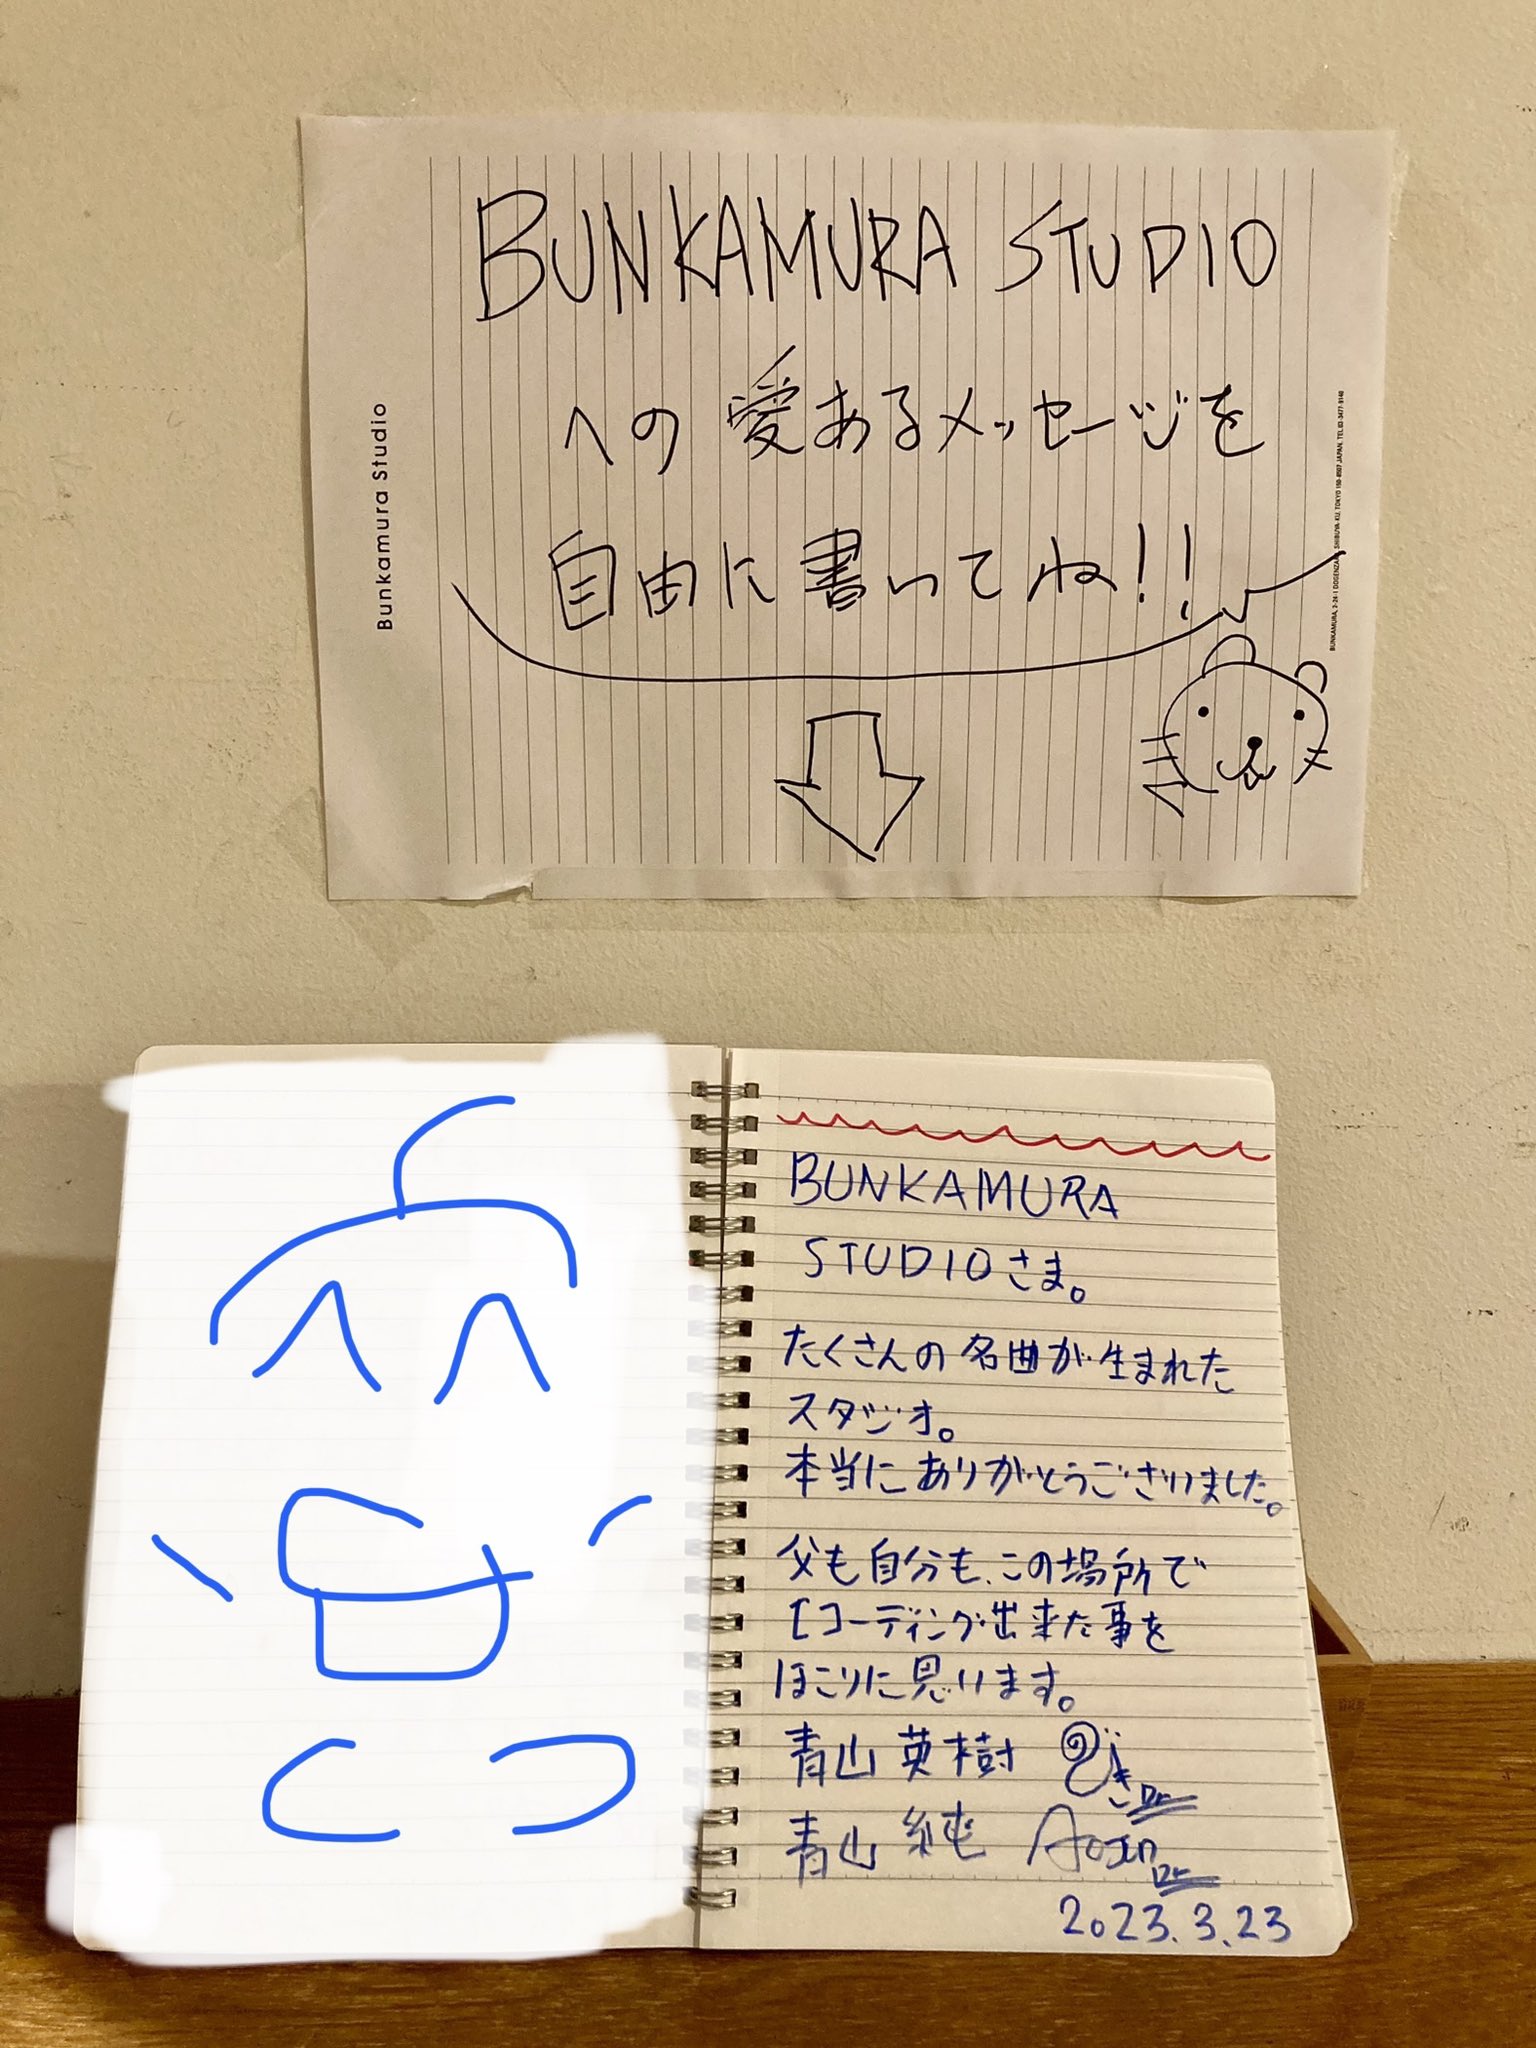 BUNKAMURA STUDIO
への愛あるメッセージを
自由に書いてね!!
Bunkamura Studio
BUNKAMURA, 2-24-1 DOGENZAKA, SHIBUYA-KU, TOKYO 150-8507 JAPAN. TEL:03-3477-9140
BUNKAMURA
STUDIOさま。
たくさんの名曲が生まれた
スタジオ。
本当にありがとうございました。
父も自分も、この場所で
レコーディング出来た事を
ほこりに思います。
青山 英樹
青山 純
2023.3.23